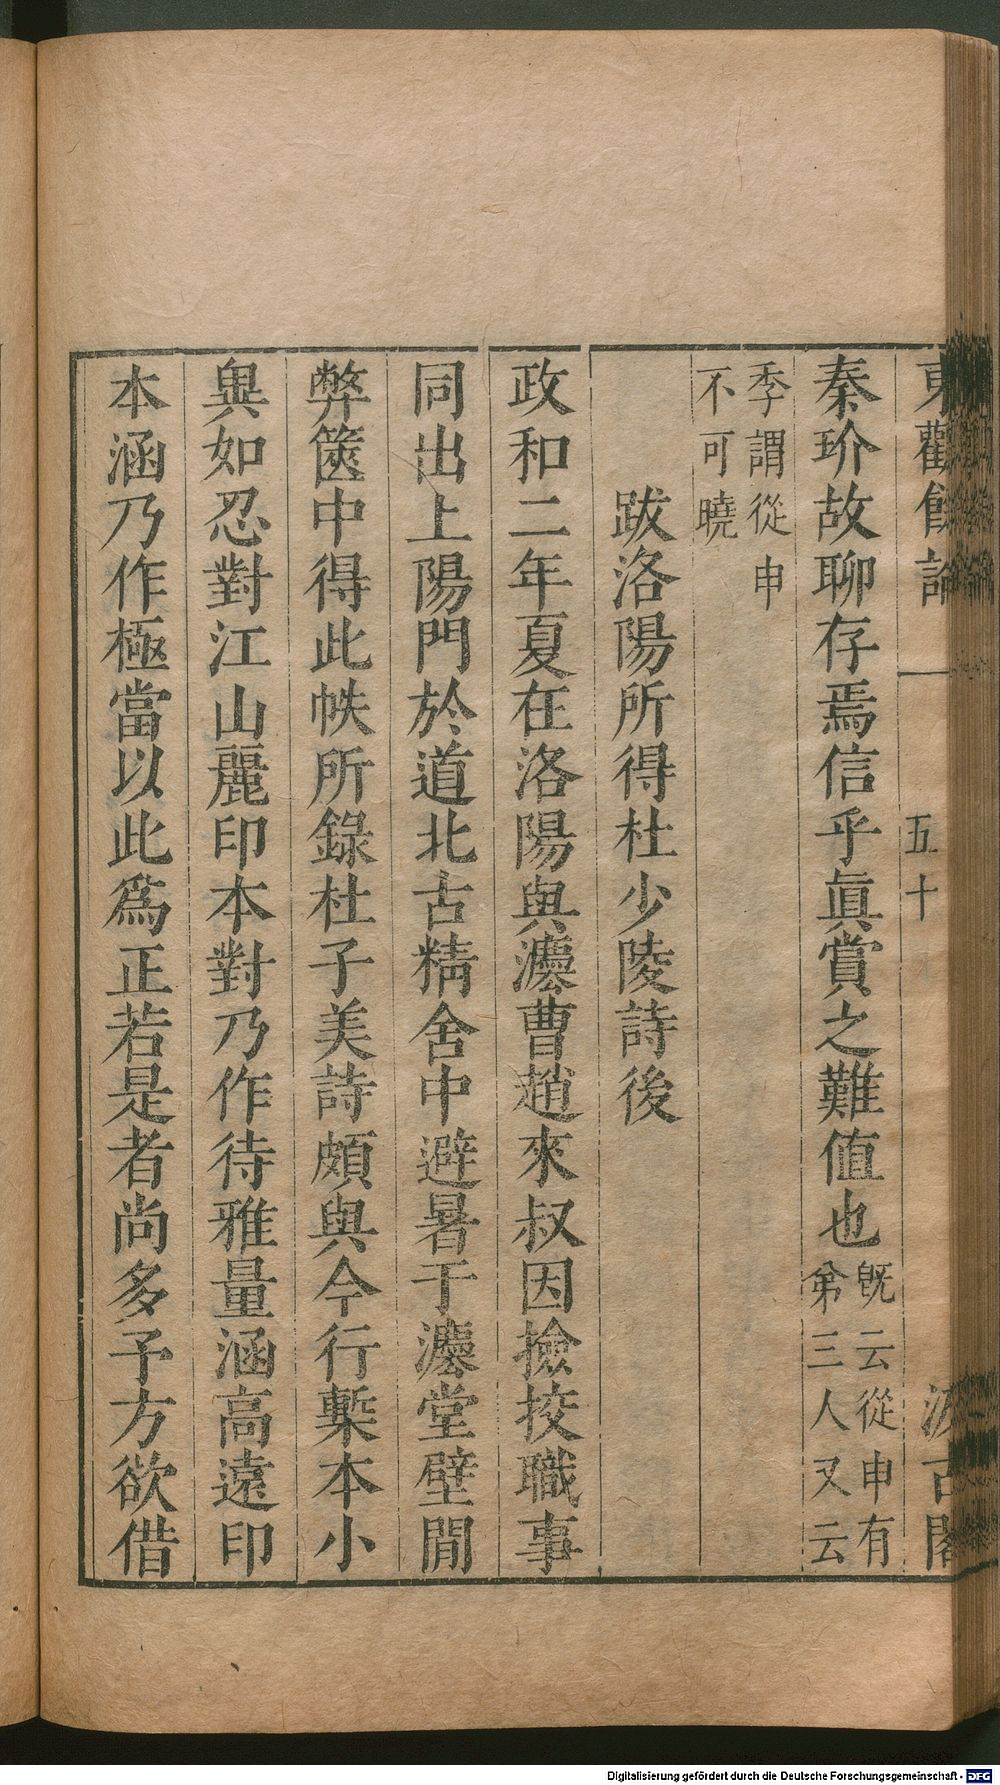 東觀餘論
五十
汲古閣
秦玠故聊存焉信乎眞賞之難值也既云從申有弟三人又云
季謂從申不可曉
跋洛陽所得杜少陵詩後
政和二年夏在洛陽與灋曹趙來叔因撿挍職事
同出上陽門於道北古精舍中避暑于灋堂壁閒
弊篋中得此帙所錄杜子美詩頗與今行槧本小
異如忍對江山麗印本對乃作待雅量涵高遠印
本涵乃作極當以此爲正若是者尚多予方欲借
Digitalisierung gefördert durch die Deutsche Forschungsgemeinschaft - DFG